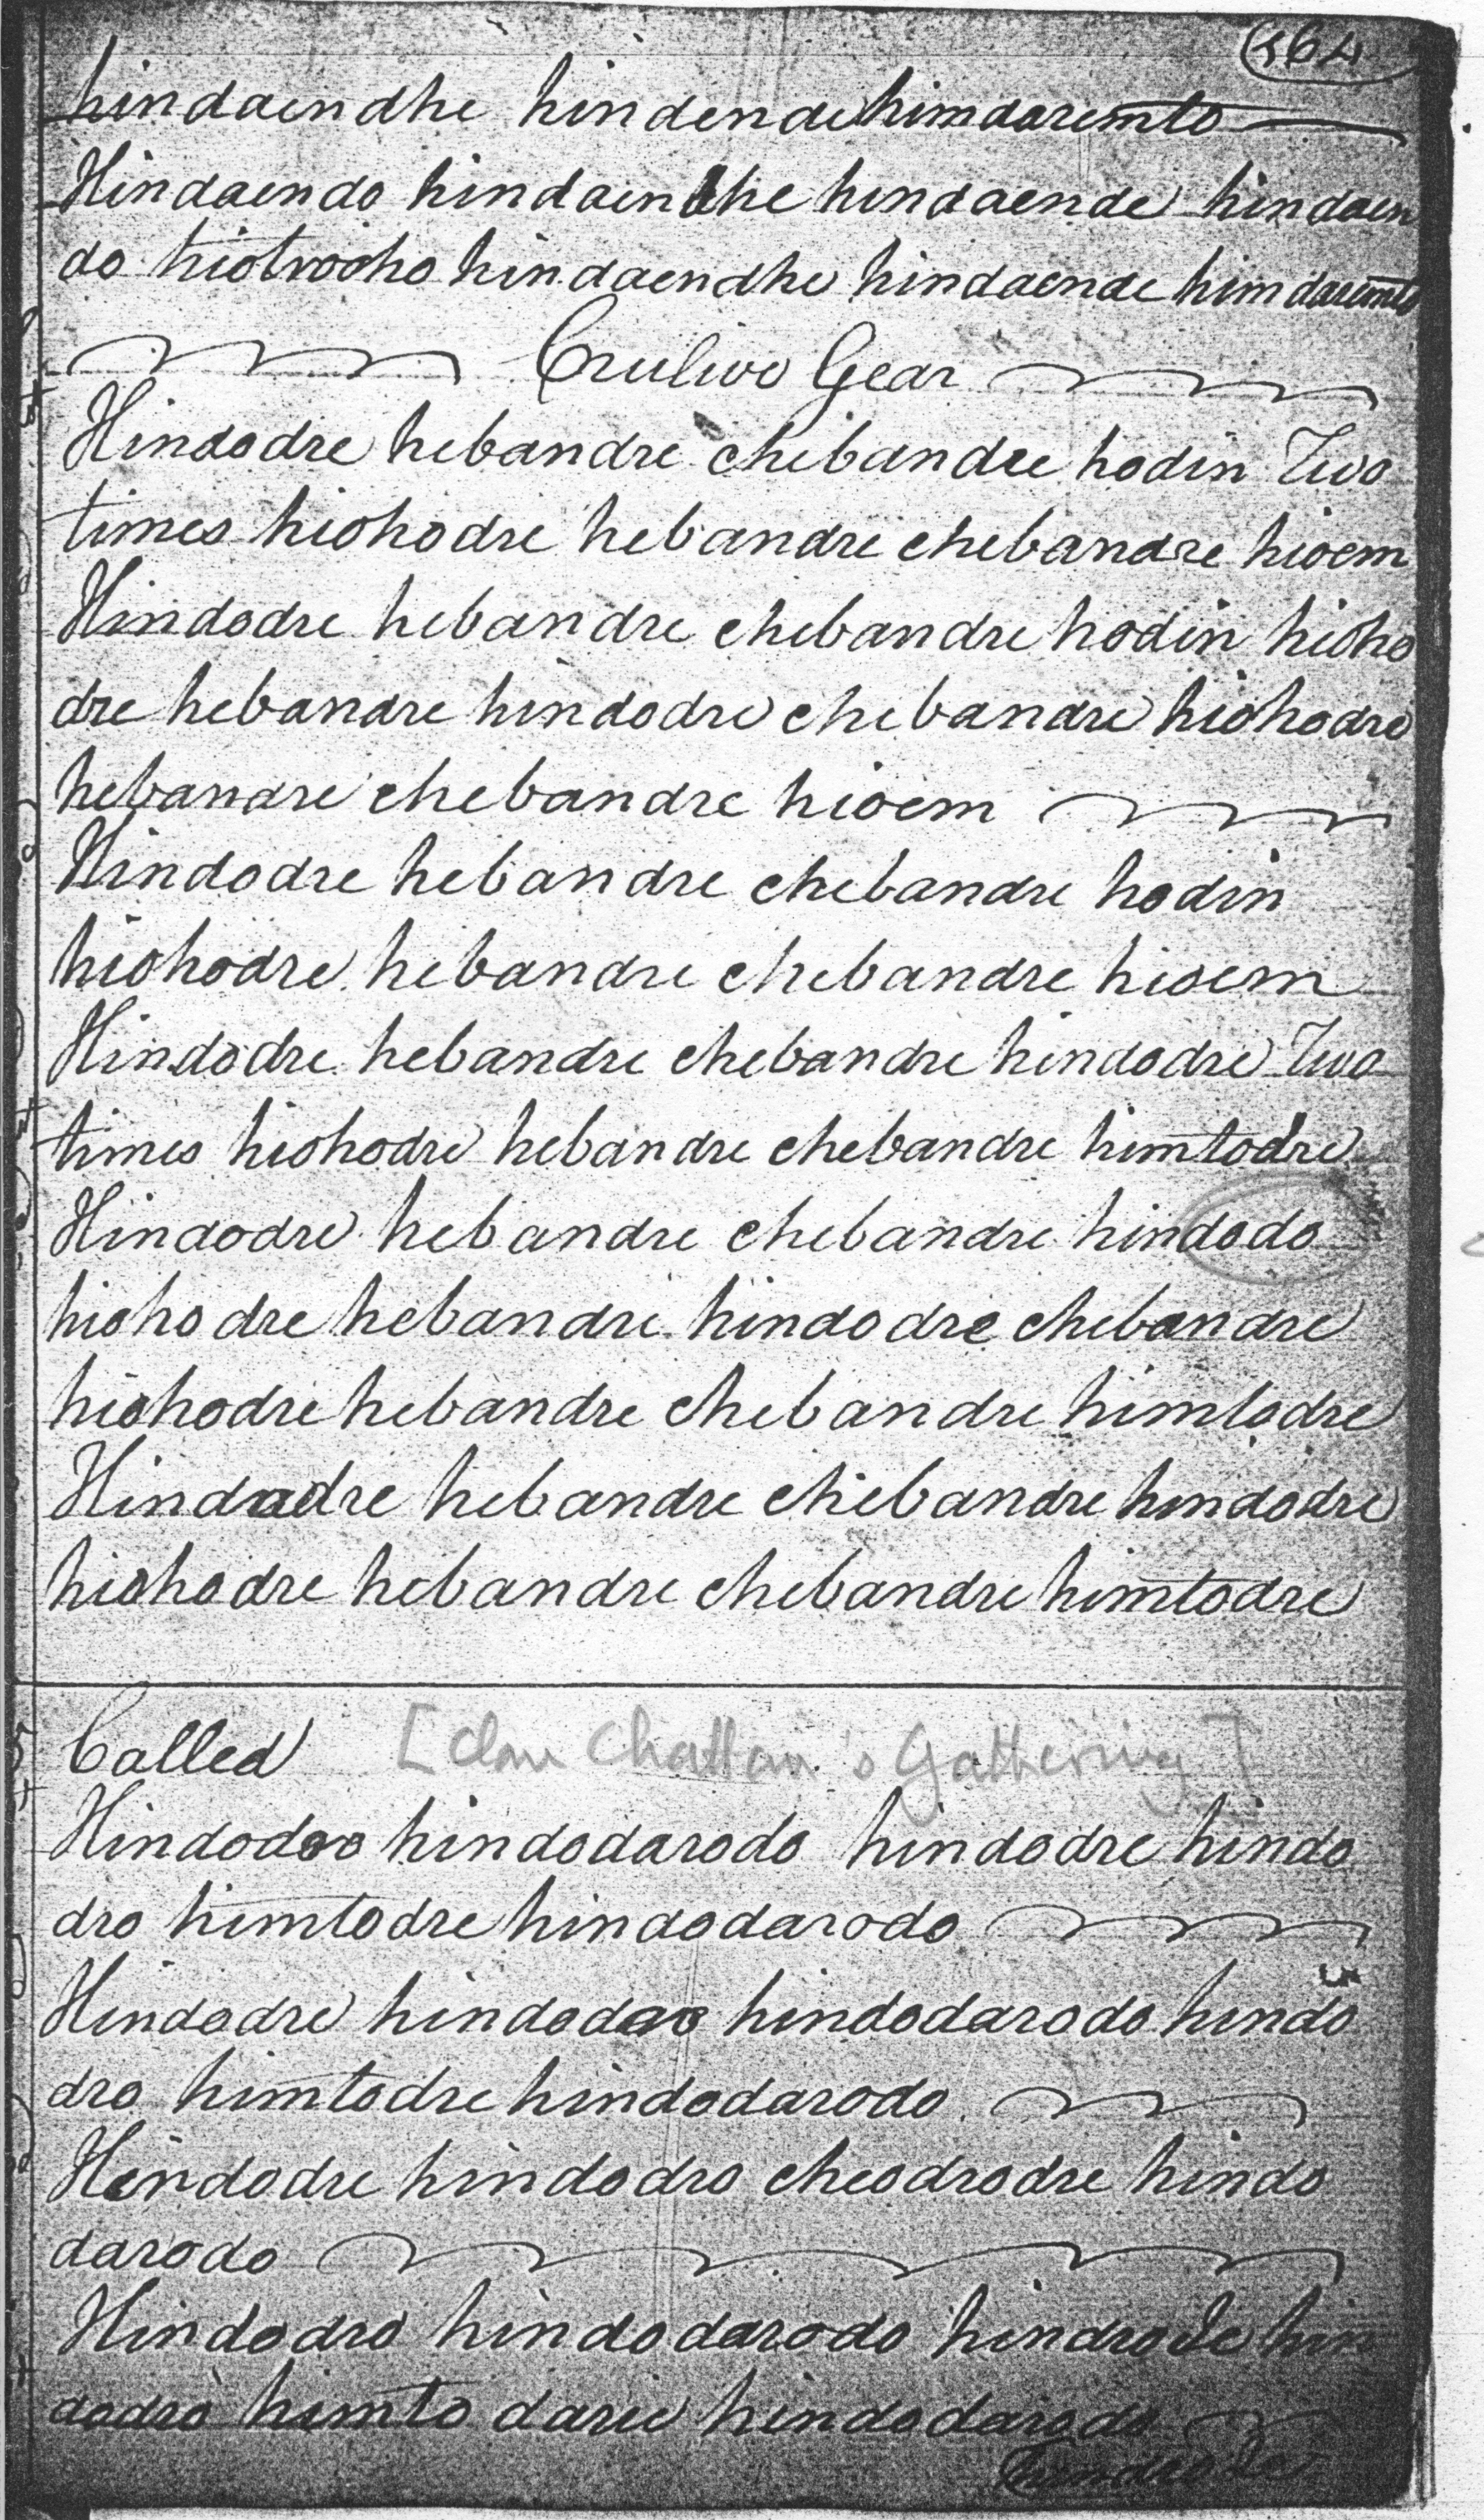 164
hindaendhe hindende himdaremto
Hindaendo hindaendhe hindaende hindaen
do hiotrocho hindaendhe hindaende himdaremto
Crulivo Gear
Hindodre hebandre chebandre hodin Two
times hiohodre hebandre chebandre hioem
Hindodre hebandre chebandre hodin hioho
dre hebandre hindodre chebandre hiohodre
hebandre chebandre hioem
Hindodre hebandre chebandre hodin
hiohodre hebandre chebandre hioem
Hindodre hebandre chebandre hindodre Two
times hiohodre hebandre chebandre himtodre
Hindodre hebandre chebandre hindodo
hiohodre hebandre hindodre chebandre
hiohodre hebandre chebandre himtodre
Hindodre hebandre chebandre hindodre
hiohodre hebandre chebandre himtodre
Called [Clan Chattan's Gathering]
Hindodro hindodarodo hindodre hindo
dro himtodre hindodarodo
Hindodre hindodro hindodarodo hindo
dro himtodre hindodarodo
Hindodre hindodro cheodrodre hindo
darodo
Hindodro hindodarodo hindrode hin
dodro himto darie hindodarodo